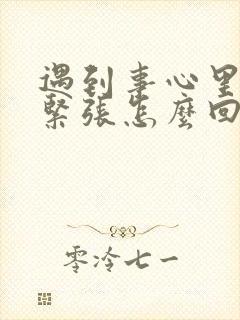 遇到事心里
緊張怎麼回
零冷七一